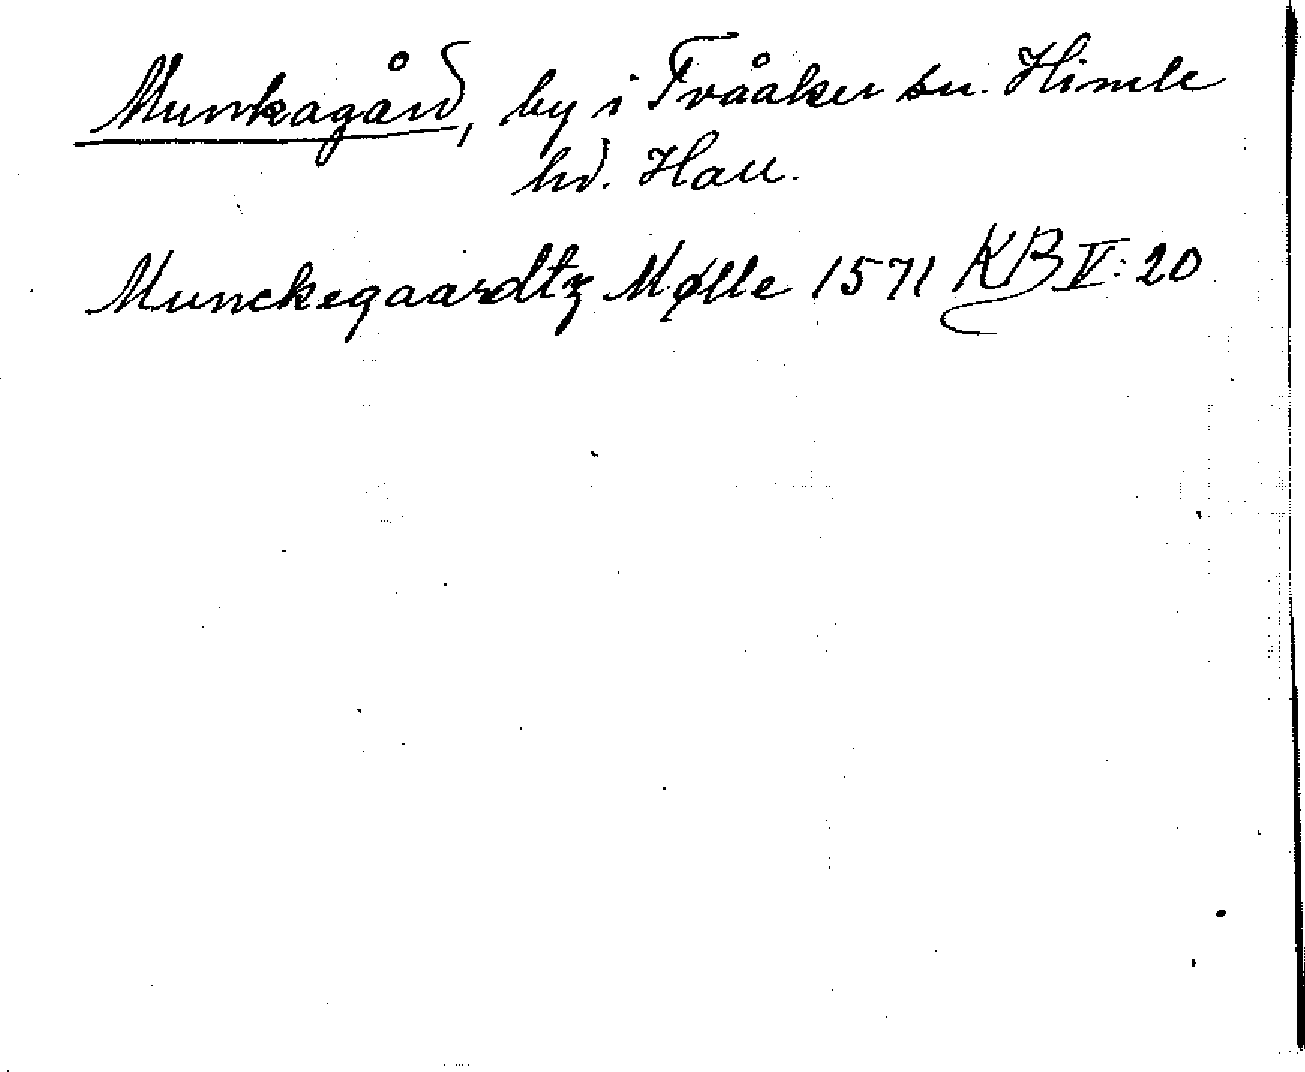 Munkagård, by i Tvååker sn. Himle
hd. Hall.
Munckegaardtz Mølle 1571 KB V: 20